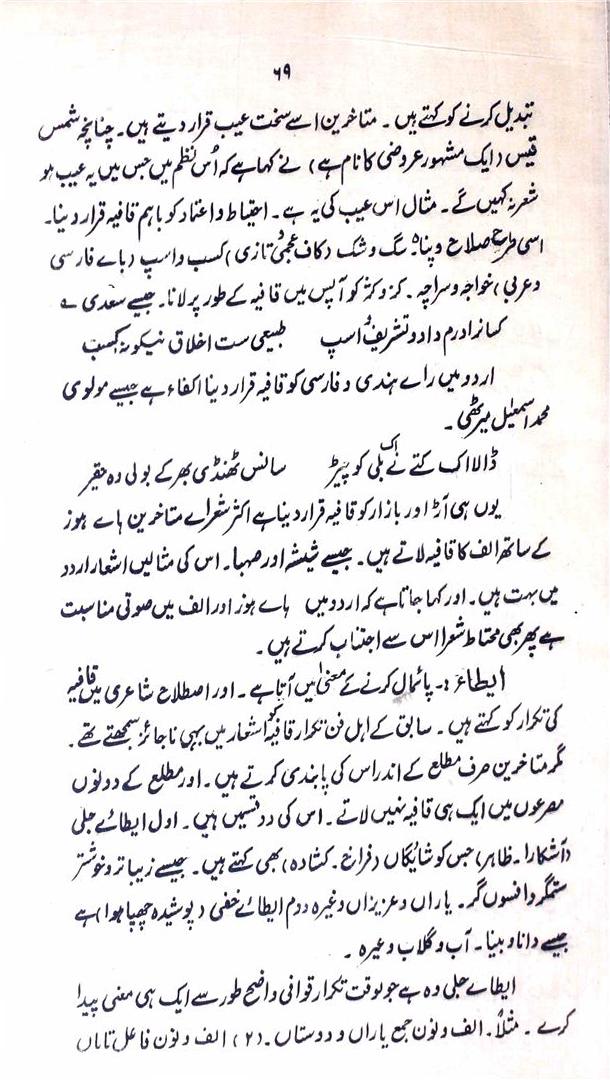 ۶۹
تبدیل کرنے کو کہتے ہیں ۔ متاخرین اسے سخت عیب قرار دیتے ہیں۔ چنانچہ شمس
قیس (ایک مشہور عروضی کا نام ہے) نے کہا ہے کہ اُس نظم میں جس میں یہ عیب ہو
شعر نہ کہیں گے ۔ مثال اس عیب کی یہ ہے ۔ احتیاط و اعتماد کو باہم قافیہ قرار دینا۔
اسی طرح صلاح و پناہ ۔ سگ و شک (کاف عجمی و تازی) کسب و اسپ (باے فارسی
و عربی) خواجہ و سراچہ ۔ کو آپس میں قافیہ کے طور پر لانا۔ جیسے سعدی ؎
کسانرا درم داد و تشریف و اسپ طبیعی ست اخلاق نیکو نہ کسب
اردو میں راے ہندی و فارسی کو قافیہ قرار دینا اکفاء ہے جیسے مولوی
محمد اسمٰعیل میرٹھی ۔
ڈالا اک کتے نے اک بلی کو چیڑ سانس ٹھنڈی بھر کے بولی وہ حقیر
یوں ہی آڑ اور بازار کو قافیہ قرار دینا ہے اکثر شعراے متاخرین ہاے ہوز
کے ساتھ الف کا قافیہ لاتے ہیں۔ جیسے شیشہ اور صہبا۔ اس کی مثالیں اشعار اردو
میں بہت ہیں۔ اور کہا جاتا ہے کہ اردو میں ہاے ہوز اور الف میں صوتی مناسبت
ہے پھر بھی محتاط شعرا اس سے اجتناب کرتے ہیں ۔
ایطاء :۔ پائمال کرنے کے معنیٰ میں آتا ہے ۔ اور اصطلاح شاعری میں قافیہ
کی تکرار کو کہتے ہیں ۔ سابق کے اہل فن تکرار قافیہ کو اشعار میں بھی ناجائز سمجھتے تھے ۔
مگر متاخرین صرف مطلع کے اندر اس کی پابندی کرتے ہیں ۔ اور مطلع کے دونوں
مصرعوں میں ایک ہی قافیہ نہیں لاتے ۔ اس کی دو قسمیں ہیں ۔ اول ایطائے جلی
(آشکارا ۔ ظاہر) جس کو شایگاں (فراخ ۔ کشادہ) بھی کہتے ہیں ۔ جیسے زیباتر و خوشتر
ستمگر و افسوں گر ۔ یاراں و عزیزاں وغیرہ دوم ایطائے خفی (پوشیدہ چھپا ہوا) ہے
جیسے دانا و بینا ۔ آب و گلاب وغیرہ ۔
ایطاے جلی وہ ہے جو بوقت تکرار قوافی واضح طور سے ایک ہی معنی پیدا
کرے ۔ مثلاً ۔ الف و نون جمع یاراں و دوستاں ۔ (۲) الف و نون فاعل تاباں